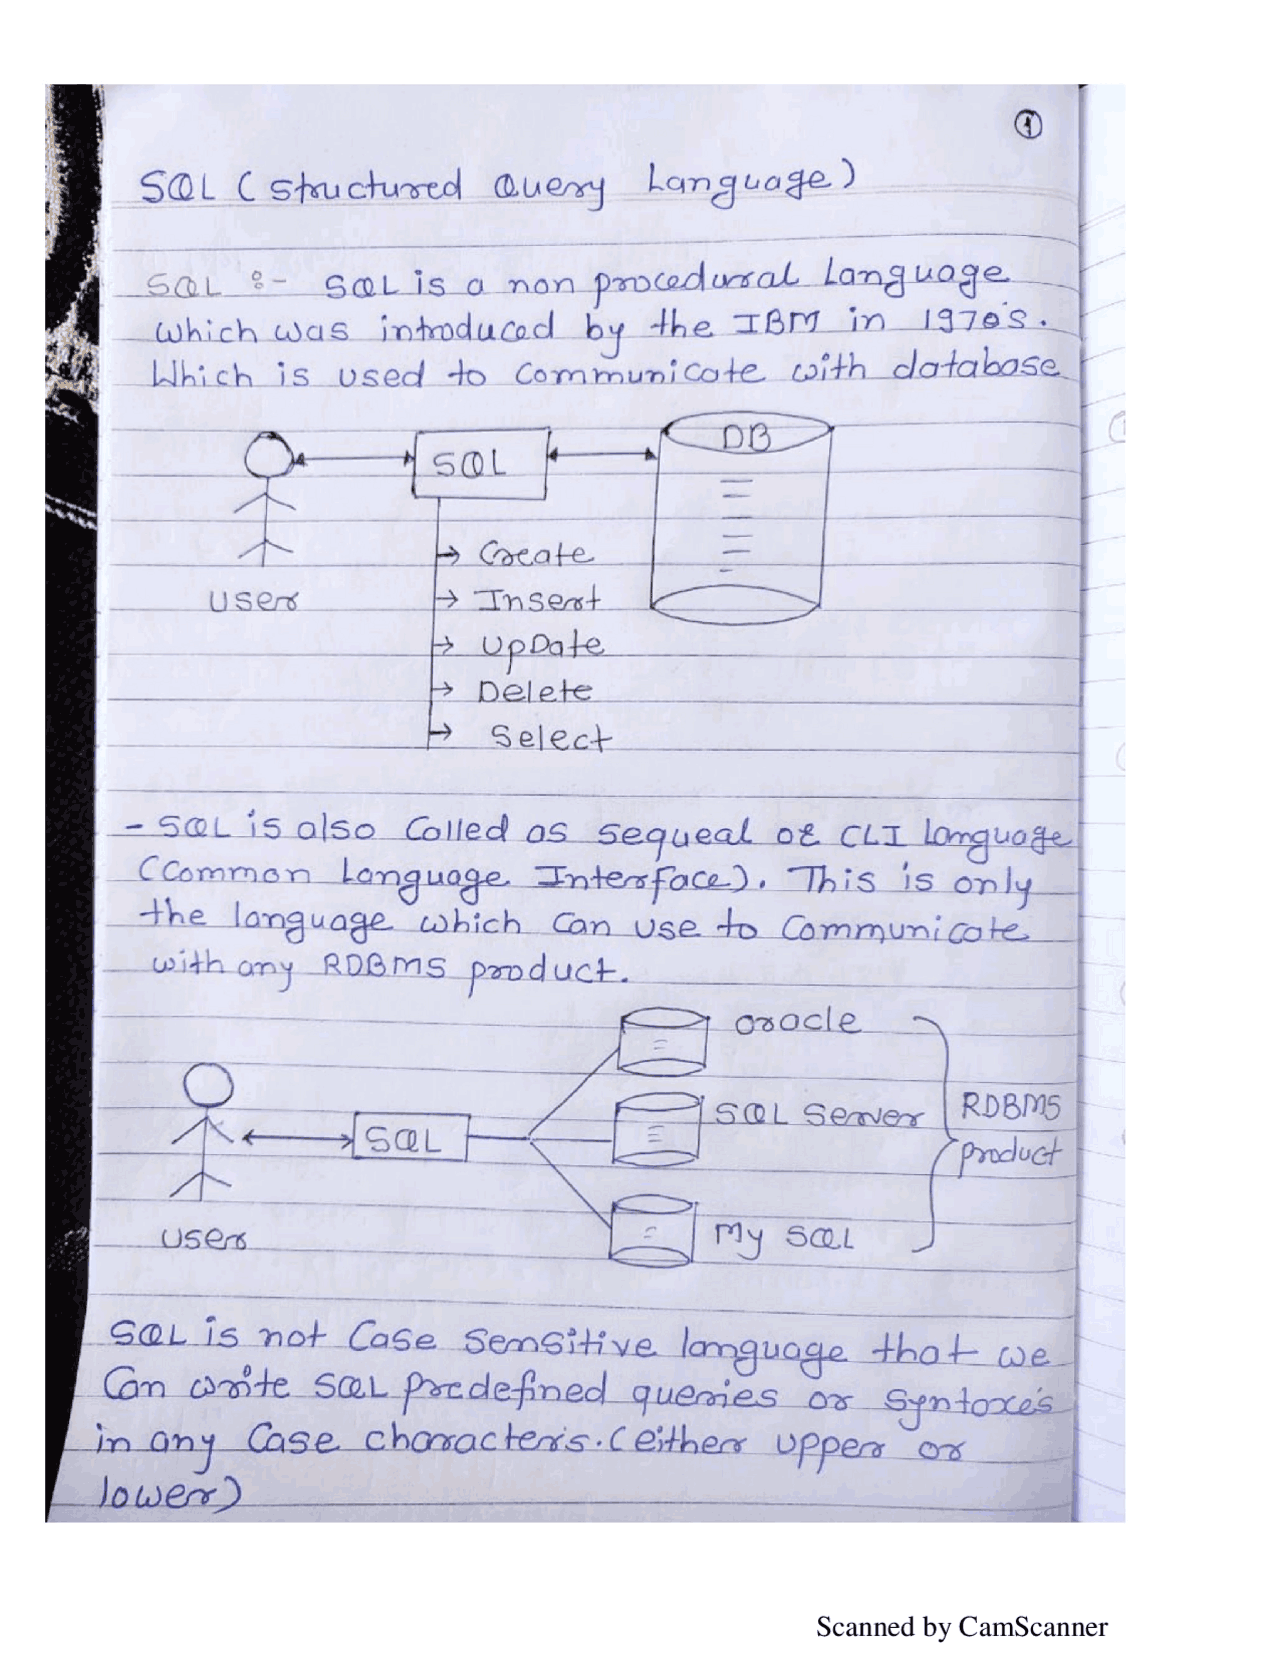 1
SQL (Structured Query Language)
SQL :- SQL is a non procedural Language
which was introduced by the IBM in 1970's.
Which is used to communicate with database
DB
SQL
Create
User
Insert
UpDate
Delete
Select
- SQL is also Called as Sequeal or CLI Language
(Common Language Interface). This is only
the language which Can use to Communicate
with any RDBMS product.
Oracle
SQL Server
RDBMS
SQL
product
User
My SQL
SQL is not Case Sensitive language that we
Can write SQL predefined queries or Syntaxe's
in any Case character's. (either upper or
lower)
Scanned by CamScanner